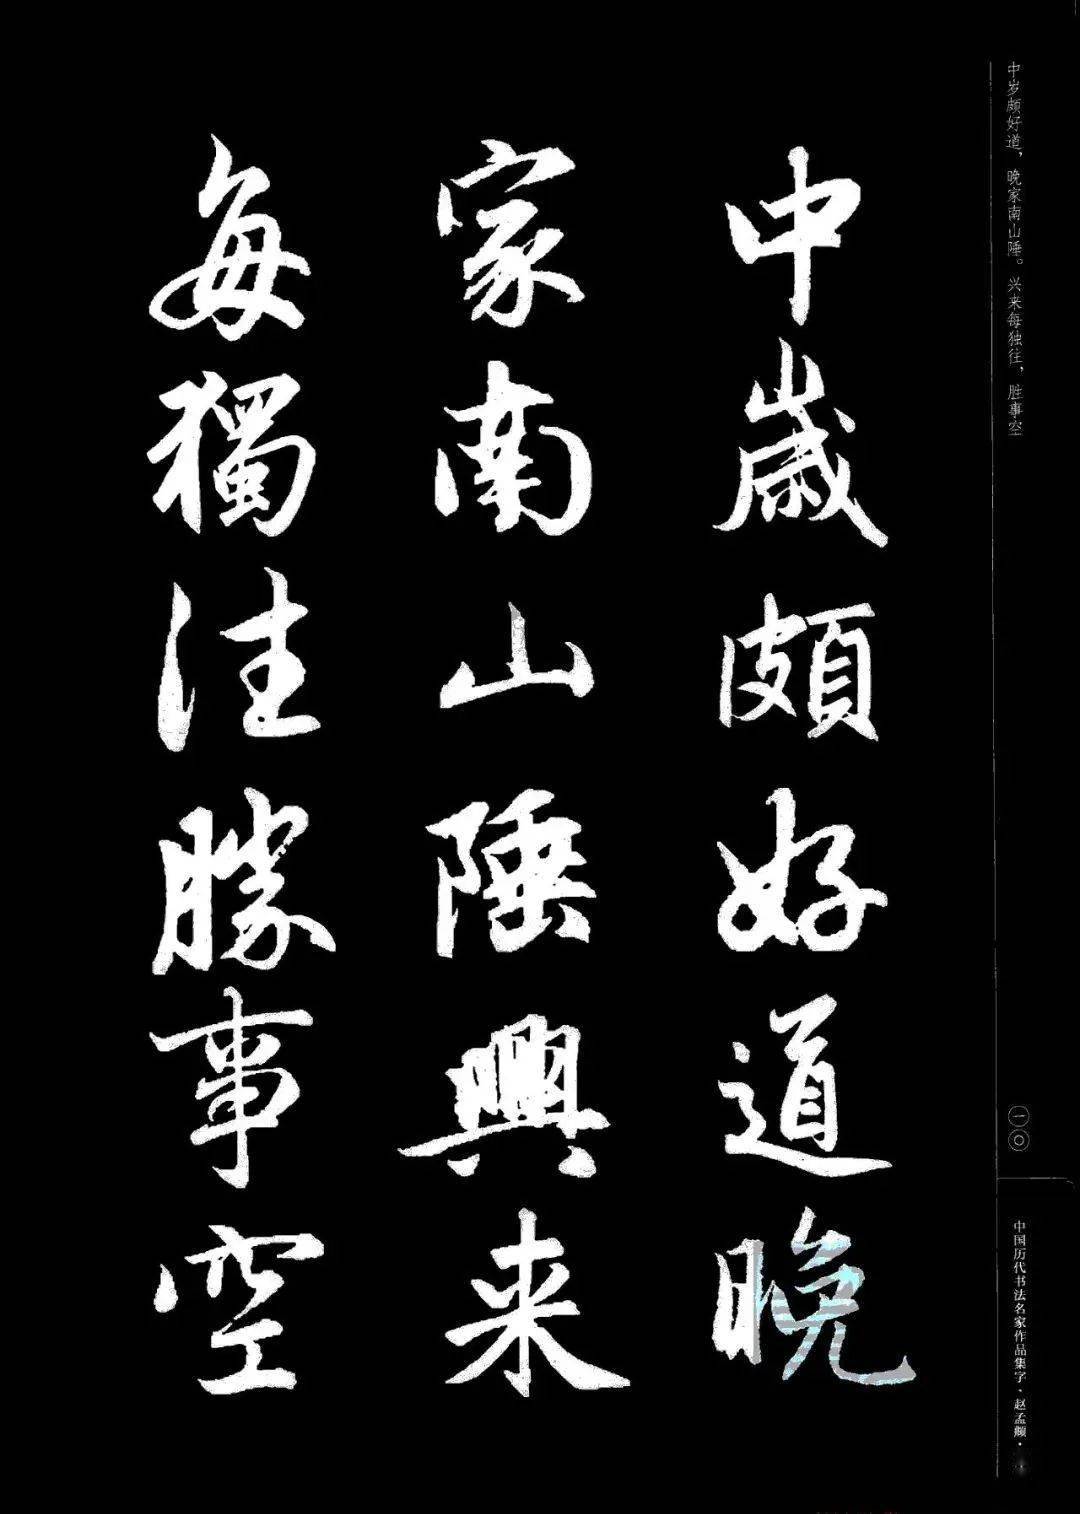 中岁颇好道，晚家南山陲。兴来每独往，胜事空
中歲頗好道晚
家南山陲興来
每獨往勝事空
一〇
中国历代书法名家作品集字·赵孟頫·